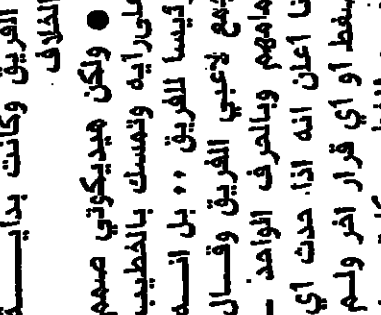 الفريق وكانت بدايـــــة
الخلاف
● ولكن ميديكوتي صمم
على رأيه وتمسك بالخطيب
رئيسا للفريق ،، بل انـــه
جمع لاعبي الفريق وقـــال
أمامهم وبالحرف الواحد ـ
أنا أعلن انه اذا حدث أي
ضغط أو أي قرار اخر ولـم